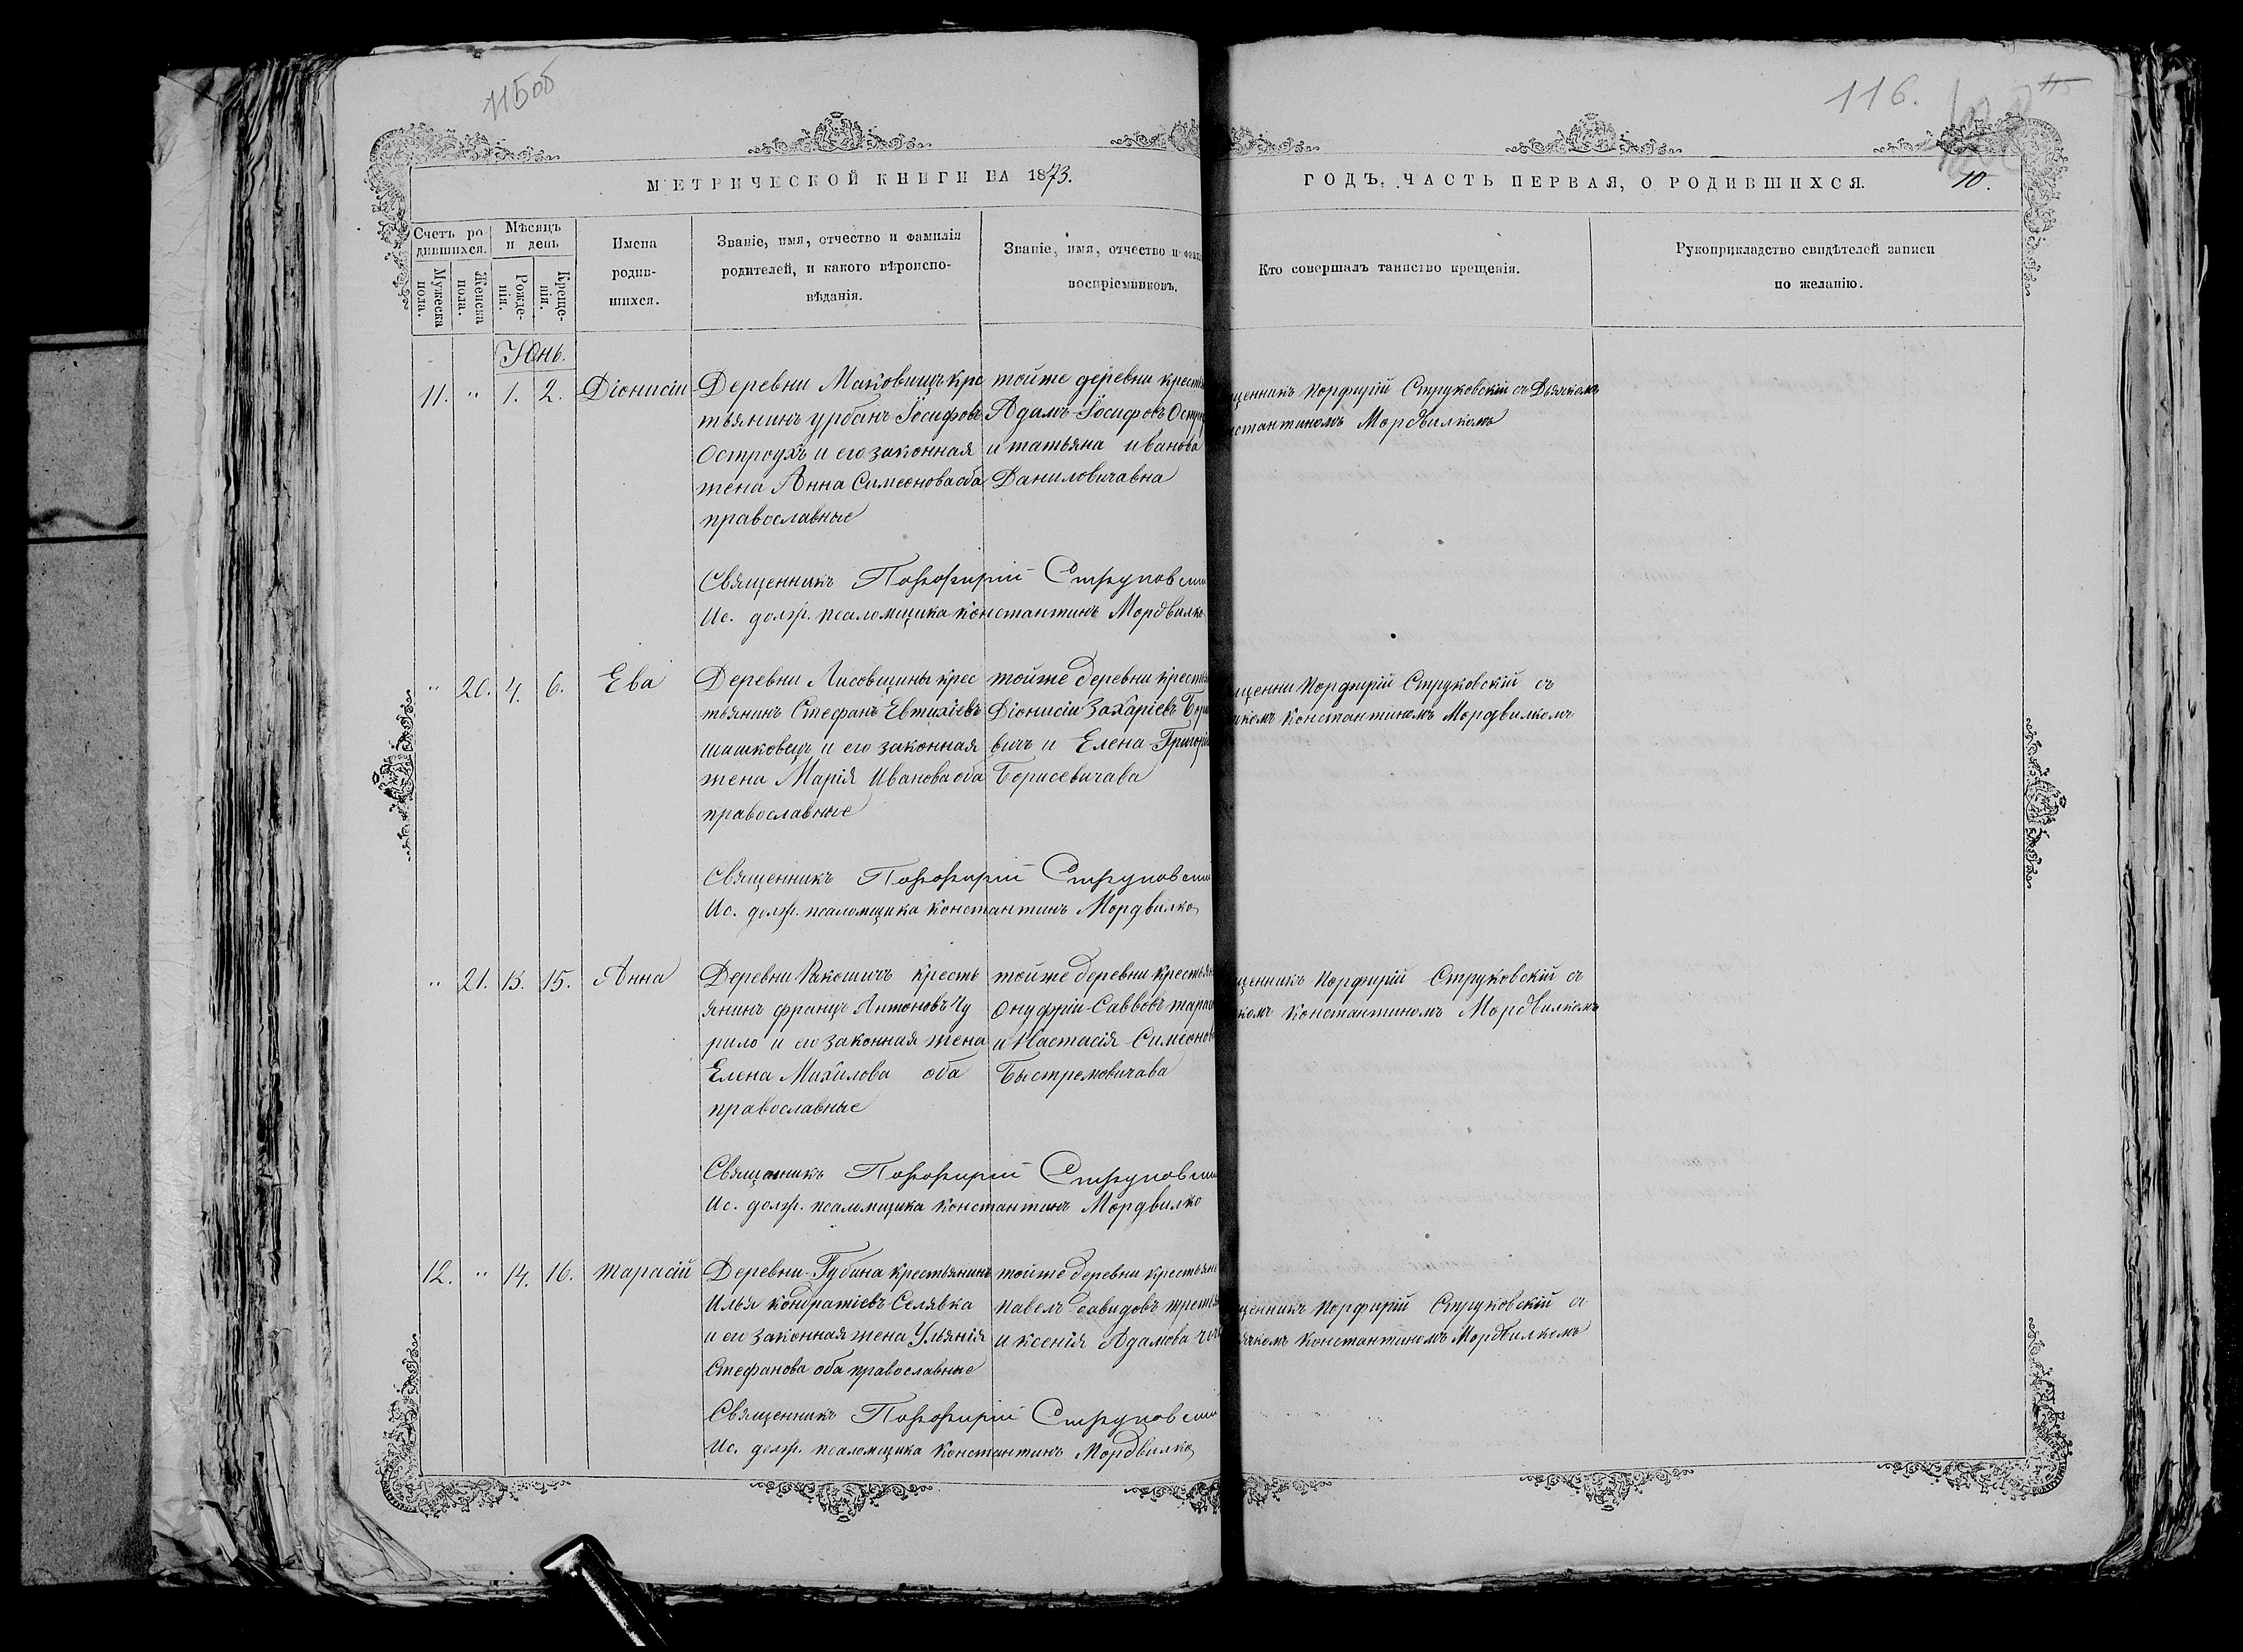 115об
116.
МЕТРИЧЕСКОЙ КНИГИ НА 1873.
ГОДЪ. ЧАСТЬ ПЕРВАЯ, О РОДИВШИХСЯ.
10.
Счетъ ро
дившихся.
Мужеска
пола.
Женска
пола.
Мѣсяцъ
и день
Рожде-
нія.
Креще-
нія.
Имена
родив-
шихся.
Званіе, имя, отчество и фамилія
родителей, и какого вѣроиспо-
вѣданія.
Званіе, имя, отчество и
воспріемниковъ.
Кто совершалъ таинство крещенія.
Рукоприкладство свидѣтелей записи
по желанію.
Юнь.
11. " 1. 2. Діонисіи
Деревни Маковищъ крс
тьянинъ урбанъ Іосифовъ
Остроухъ и его законная
жена Анна Симеонова оба
православные
тойже деревни крестья
Адамъ Іосифовъ
и татьяна иванова
Даниловичавна
щенникъ Порфирій Струковскій съ Дьячкомъ
стантиномъ Мордвилкомъ
Священникъ Порфирій Струковскій
Ис. долж. псаломщика константинъ Мордвилко
" 20. 4. 6. Ева
Деревни Лисовщины крес
тьянинъ Стефанъ Евтихіевъ
шашковецъ и его законная
жена Марія Иванова оба
православные
тойже деревни крестья
Діонисіи Захаріевъ
вичъ и Елена
Борисевичава
щенни Порфирій Струковскій съ
комъ Константиномъ Мордвилкомъ
Священникъ Порфирій Струковскій
Ис. долж. псаломщика Константинъ Мордвилко
" 21. 13. 15. Анна
Деревни Ракошичъ кресть
янинъ францъ Антоновъ Чу
рило и его законная жена
Елена Михилова оба
православные
тойже деревни крестьян
Онуфріи Саввовъ
и Настасія Симеонов
Быстремовичава
щенникъ Порфирій Струковскій съ
комъ Константиномъ Мордвилкомъ
Священникъ Порфирій Струковскій
Ис. долж. псаломщика Константинъ Мордвилко
12. " 14. 16. тарасій
Деревни Губина крестьянинъ
Илья кондратіевъ Селявка
и его законная жена Ульянія
Стефанова оба православные
тойже деревни крестьян
павелъ
и ксенія Адамова
щенникъ Порфирій Струковскій съ
ячкомъ Константиномъ Мордвилкомъ
Священникъ Порфирій Струковскій
Ис. долж. псаломщика Константинъ Мордвилко